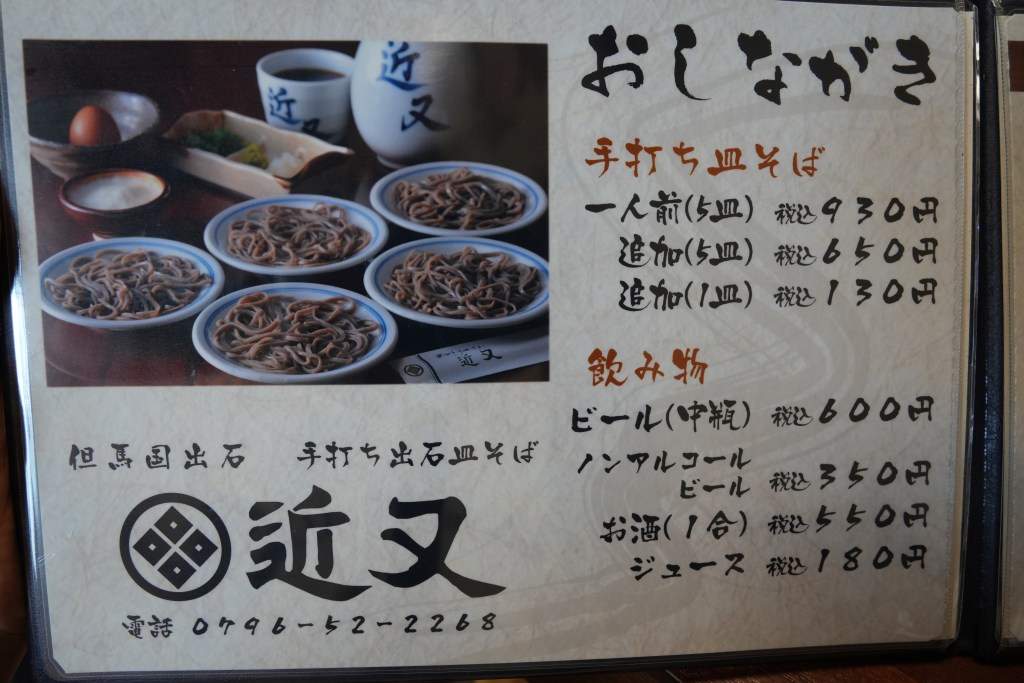 おしながき
手打ち皿そば
一人前(5皿) 税込930円
追加(5皿) 税込650円
追加(1皿) 税込130円
飲み物
ビール(中瓶) 税込600円
ノンアルコール
ビール 税込350円
お酒(1合) 税込550円
ジュース 税込180円
近又
近又
近又
但馬国出石 手打ち出石皿そば
近又
電話 0796-52-2268